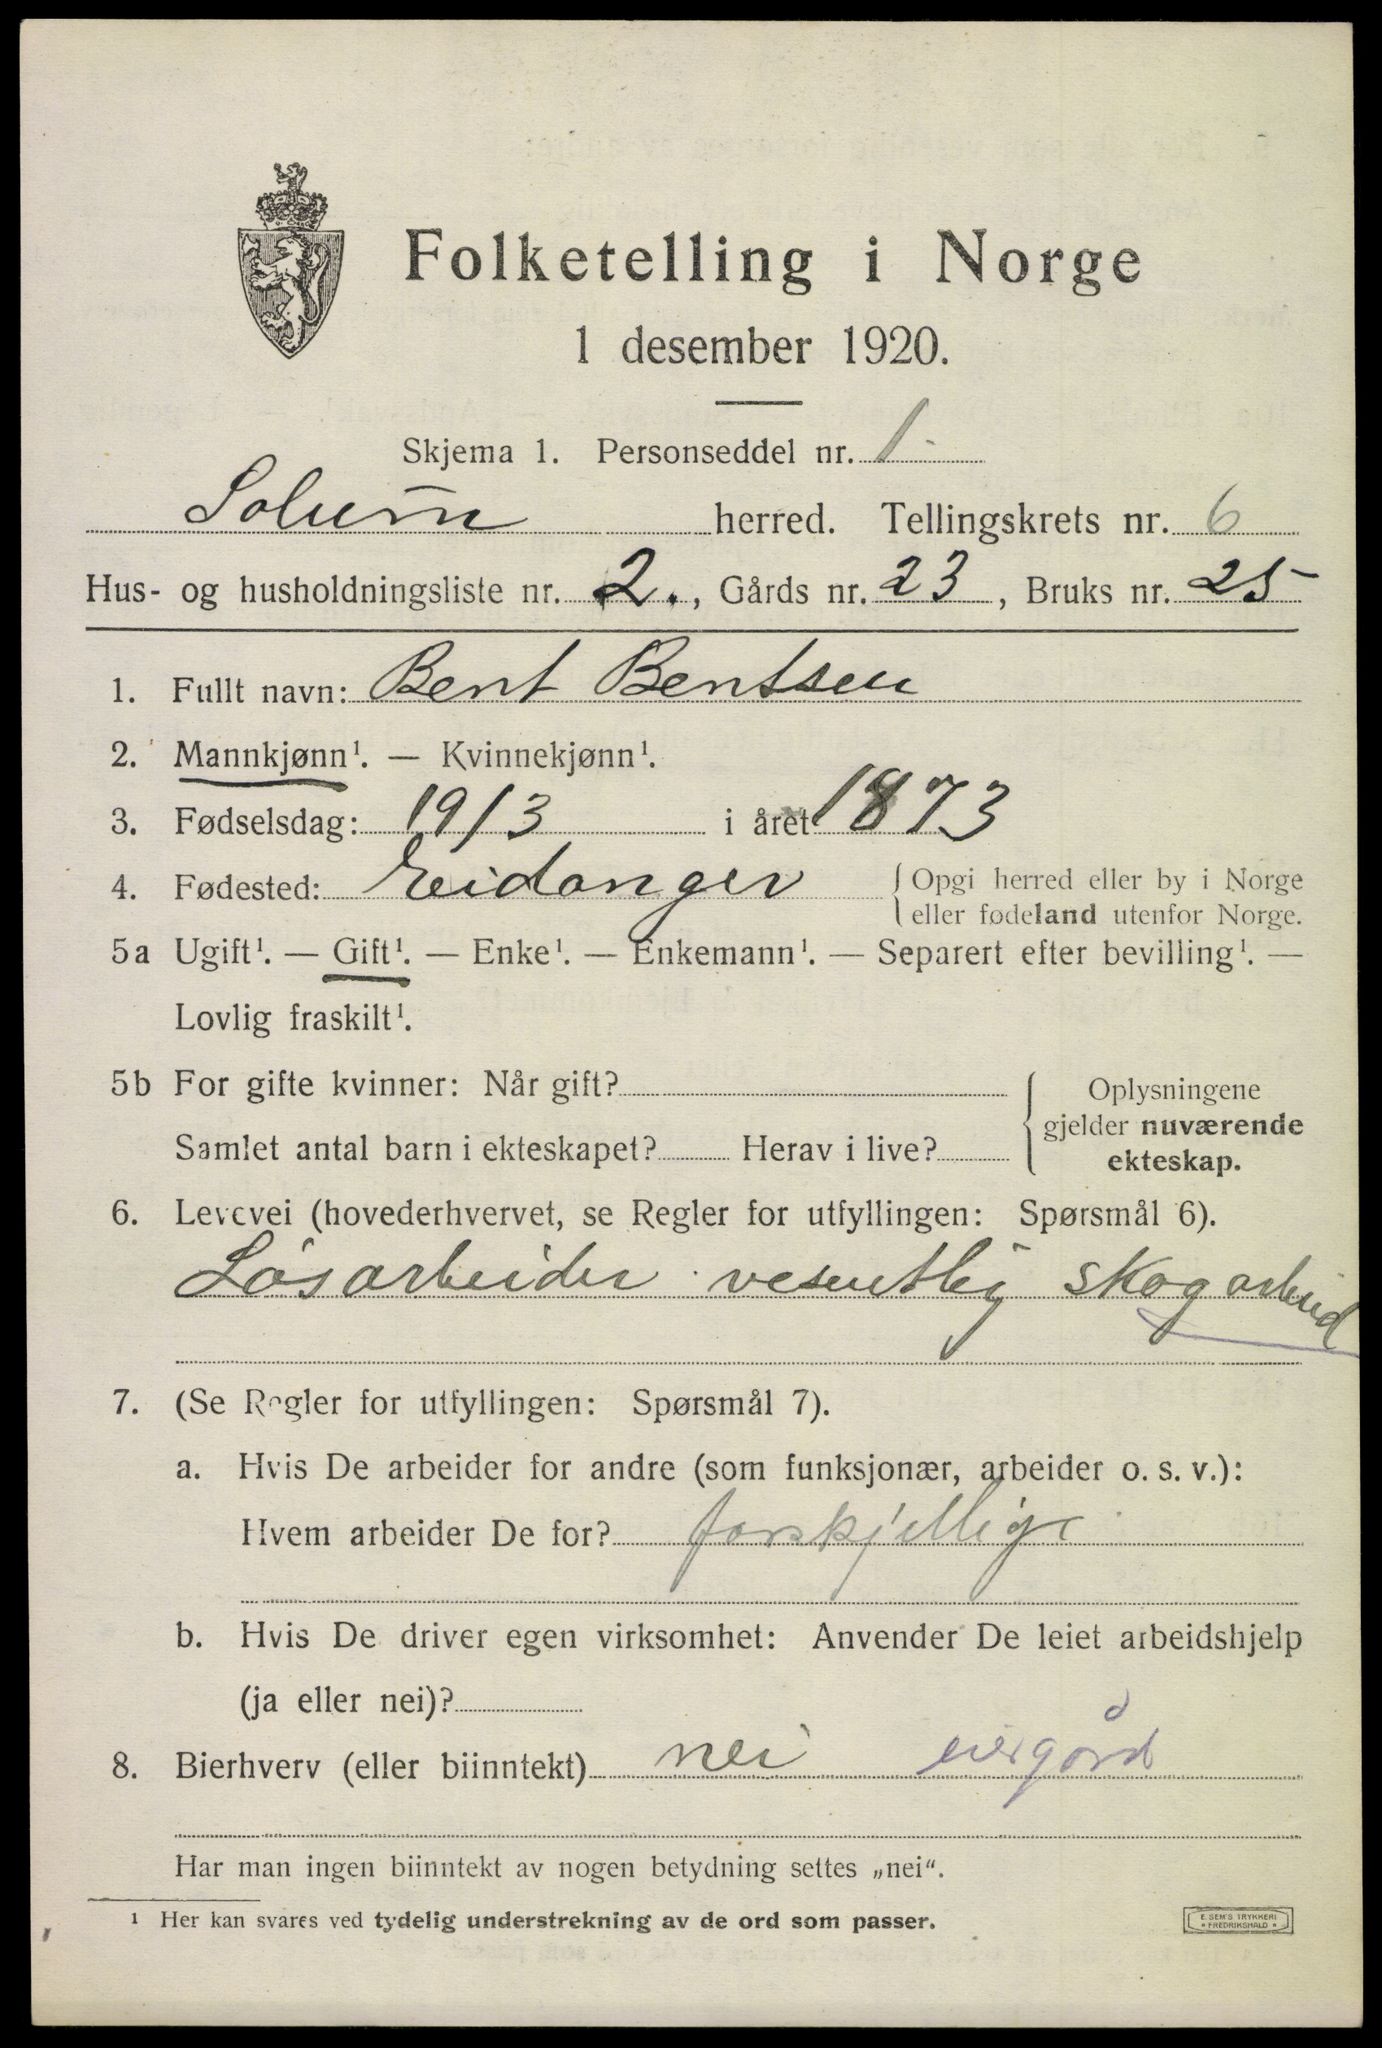 Folketelling i Norge
1 desember 1920.
Skjema 1. Personseddel nr. 1
Solum herred. Tellingskrets nr. 6
Hus- og husholdningsliste nr. 2., Gårds nr. 23, Bruks nr. 25
1. Fullt navn: Bent Bentsen
2. Mannkjønn¹. — Kvinnekjønn¹.
3. Fødselsdag: 19/3 i året 1873
4. Fødested: Eidanger {Opgi herred eller by i Norge
eller fødeland utenfor Norge.
5a Ugift¹. — Gift¹. — Enke¹. — Enkemann¹. — Separert efter bevilling¹. —
Lovlig fraskilt¹.
5b For gifte kvinner: Når gift? { Oplysningene
gjelder nuværende
Samlet antal barn i ekteskapet? Herav i live?
ekteskap.
6. Levevei (hovederhvervet, se Regler for utfyllingen: Spørsmål 6).
Løsarbeider vesentlig skogarbeid
7. (Se Regler for utfyllingen: Spørsmål 7).
a. Hvis De arbeider for andre (som funksjonær, arbeider o. s. v.):
Hvem arbeider De for? forskjellige
b. Hvis De driver egen virksomhet: Anvender De leiet arbeidshjelp
(ja eller nei)?
8. Bierhverv (eller biinntekt) nei eier gård
Har man ingen biinntekt av nogen betydning settes „nei“.
¹ Her kan svares ved tydelig understrekning av de ord som passer.
E. SEM'S TRYKKERI
* FREDRIKSHALD *